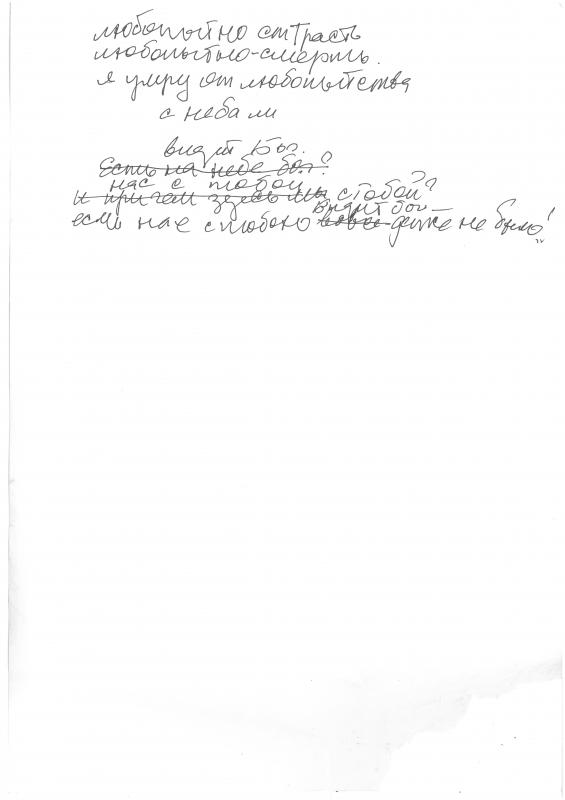 любопытно страсть
любопытно-смерть.
я умру от любопытства
с небами
видит Бог.
Есть на небе бог?
нас с тобой
и причем здесь мы с тобой?
видит бог —
если нас с тобою вовсе даже не было!